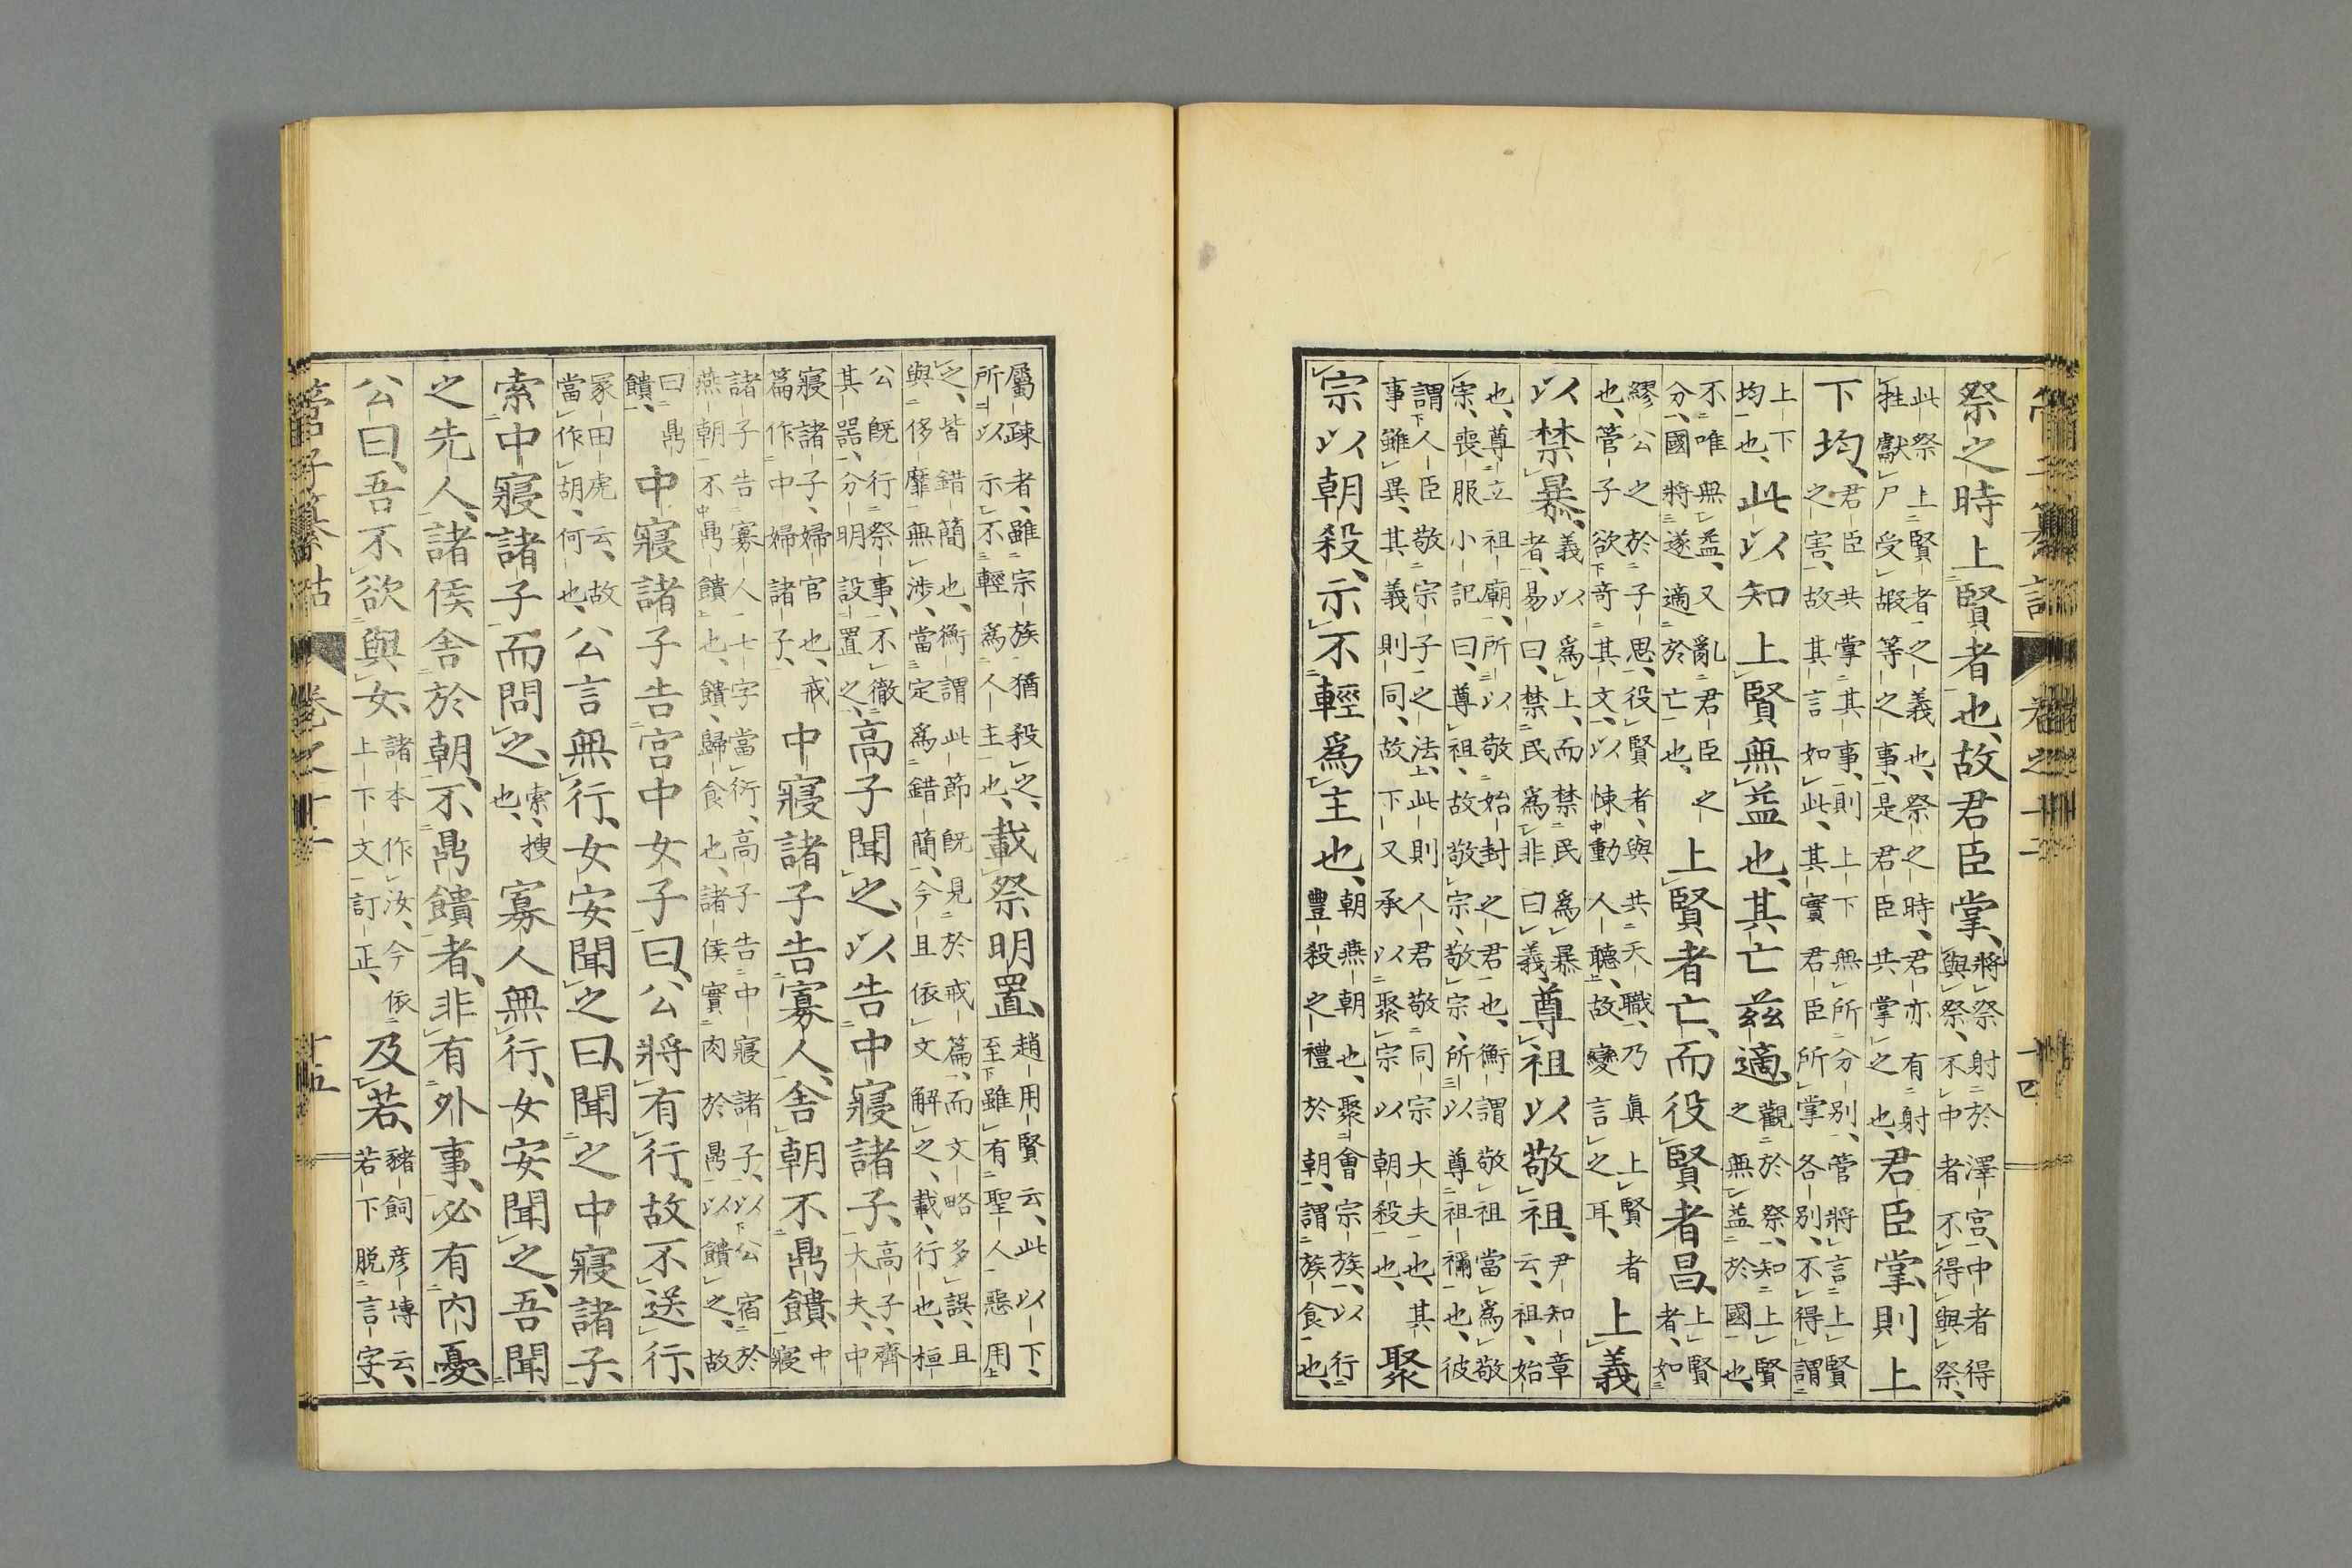 管子纂詁 卷之十二 十四
祭之時上賢者也、故君臣掌、將祭射於澤宮、中者得與祭、不中者不得與祭、
此祭上賢者之義也、祭之時、君亦有射牲獻尸受嘏等之事、是君臣共掌之也、君臣掌、則上
下均、君臣共掌其事、則上下無所分別、管將言上賢之害、故其言如此、其實君臣所掌各別、不得謂
上下均也、此以知上賢無益也、其亡茲適、觀於祭、知上賢之無益於國也、
不唯無益、又亂君臣之分、國將遂適於亡也、上賢者亡、而役賢者昌、上賢者、如
繆公之於子思、役賢者、與共天職、乃眞上賢者也、管子欲奇其文、以悚動人聽、故變言之耳、上義
以禁暴、義以爲上、而禁民爲暴者、易曰、禁民爲非曰義、尊祖以敬祖、尹知章云、祖、始
也、尊立祖廟、所以敬始封之君也、衡謂敬祖當爲敬宗、喪服小記曰、尊祖、故敬宗、敬宗、所以尊祖禰也、彼
謂人臣敬宗子之法、此則人君敬同宗大夫也、其事雖異、其義則同、故下又承以聚宗以朝殺也、聚
宗以朝殺、示不輕爲主也、朝燕朝也、聚會宗族、以行豐殺之禮於朝、謂族食也、
屬疎者、雖宗族猶殺之、所以示不輕爲人主也、載祭明置、趙用賢云、此以下、至雖有聖人惡用
之、皆錯簡也、衡謂此節既見於戒篇、而文略多誤、且與侈靡無涉、當定爲錯簡、今且依文解之、載、行也、桓
公既行祭事、不徹其器、分明設置之、高子聞之、以告中寢諸子、高子、齊大夫、中
寢諸子、婦官也、戒篇作中婦諸子、中寢諸子告寡人、舍朝不鼎饋、中寢
諸子告寡人七字當衍、高子告中寢諸子、以公宿於燕朝不鼎饋也、饋、歸食也、諸侯實肉於鼎以饋之、故
曰鼎饋、中寢諸子告宮中女子曰、公將有行、故不送行、
冢田虎云、故當作胡、何也、公言無行、女安聞之曰、聞之中寢諸子、
索中寢諸子而問之、索、搜也、寡人無行、女安聞之、吾聞
之先人、諸侯舍於朝、不鼎饋者、非有外事、必有內憂、
公曰、吾不欲與女、諸本作汝、今依上下文訂正、及若、豬飼彥博云、若下脱言字、
管子纂詁 卷之十二 十五